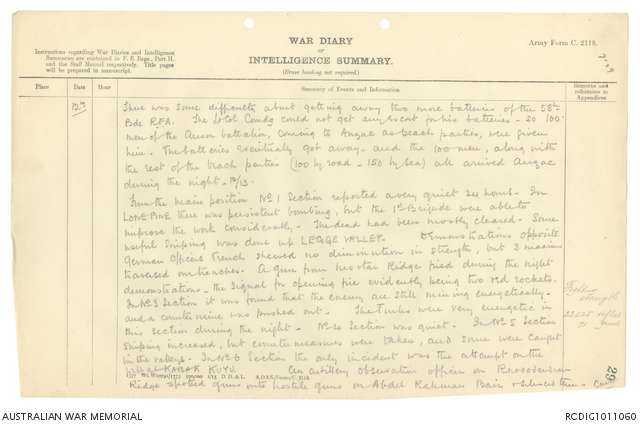 WAR DIARY
or
INTELLIGENCE SUMMARY.
(Erase heading not required.)
Army Form C. 2118.
Instructions regarding War Diaries and Intelligence
Summaries are contained in F. S. Regs., Part II.
and the Staff Manual respectively. Title pages
will be prepared in manuscript.
Place
Date
Hour
Summary of Events and Information
Remarks and
references to
Appendices
There was some difficulty about getting away two more batteries of the 58th
Bde RFA. The Lt Col Comdg could not get any escort for his batteries - so 100
men of the battalion, coming to Anzac as beach parties, were given
him. The batteries got away and the 100 men, along with
the rest of the beach parties (100 by road - 150 by sea) all arrived Anzac
during the night - 12/13.
From the main position No 1 Section reported a very quiet 24 hours. In
LONE PINE there was persistent bombing, but the 1st Brigade were able to
improve the work considerably. The dead had been mostly cleared. Some
useful sniping was done up LEGGE VALLEY. Demonstrations opposite
German Officers Trench shewed no diminution in strength, but 2 maxims
traversed our trenches. A gun from Ridge fired during the night
demonstrations - the signal for opening fire evidently being two red rockets.
In No 3 Section it was found that the enemy are still mining energetically -
and a counter mine was pushed out. The Turks were very energetic in
this section during the night - No 4 Section was quiet. In No 5 Section
sniping increased, but counter measures were taken, and some were caught
in the valleys. In No 6 Section the only incident was the attempt on the
KABAK KUYU. An artillery observation officer on Rhododendron
Ridge spotted guns onto hostile guns on Abdel Rahman Bair & silenced them -
strength
22025 rifles
29
AUSTRALIAN WAR MEMORIAL
RCDIG1011060